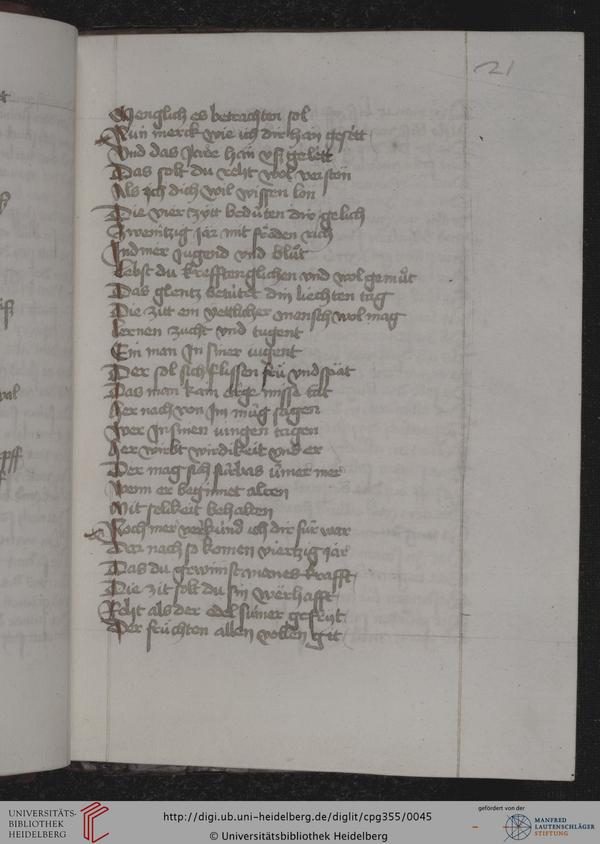 21
Menglich es betrachten sol
Nun merck wie ich dir han geseit
Vnd das Jare han vsz geleit
Das solt du recht wol verston
Als ich dich wil wissen lon
Die vier zytt bedüten dir gelich
Zwenitzig jar mit fröden rich
In diner jugend vnd blůt
Lebst du krefftenglichen vnd wol gemůt
Das glentz betütet din liechten tag
Die zitt ein yettlicher mensch wol mag
Lernen zucht vnd tugent
Ein man In siner iugent
Der sol sich flissen frü vnd spät
Das man kain arge missetat
Her nach von Im müg sagen
Wer In sinen iungen tagen
Her wirbt wirdikeit vnd er
Der mag sich fürbas ümer mer
Wenn er beginnet alten
Mit selikeit behalten
Noch mer verkünd ich dir für war
Dar nach so komen viertzig jar
Das du gewinst manes krafft
Die zit solt du sin werhafft
Recht als der edel sumer gefryt
Der früchten allen vollen git
UNIVERSITÄTS-
BIBLIOTHEK
HEIDELBERG
http://digi.ub.uni-heidelberg.de/diglit/cpg355/0045
© Universitätsbibliothek Heidelberg
gefördert von der
MANFRED
LAUTENSCHLÄGER
STIFTUNG